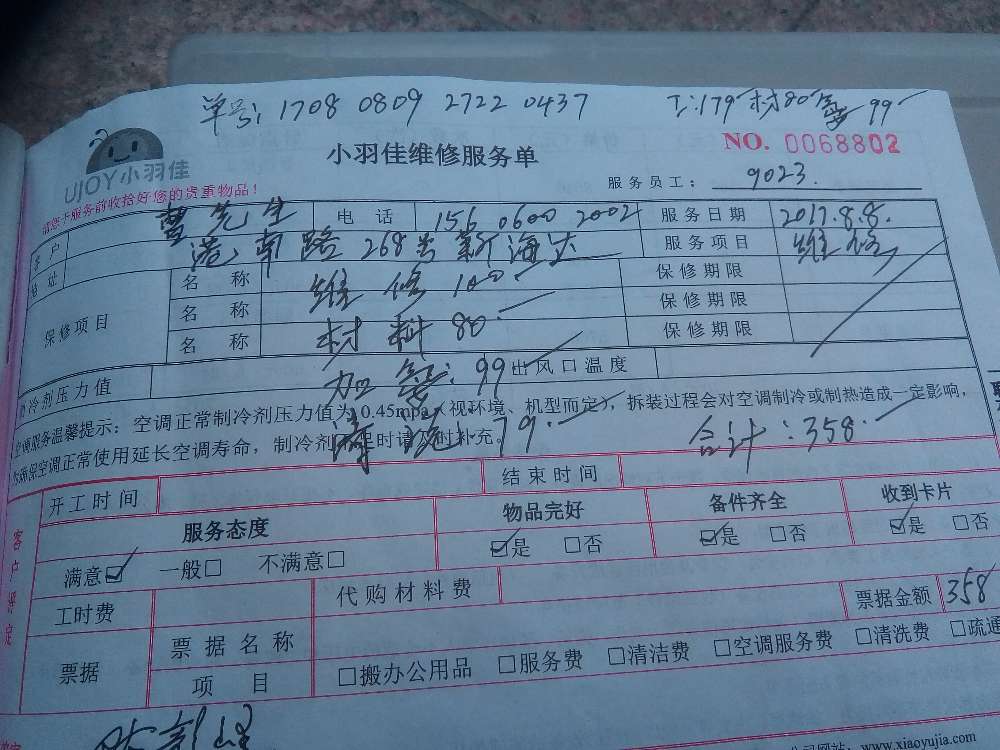 单号: 1708 0809 2722 0437 工:179 材80 氟99
UJOY小羽佳
小羽佳维修服务单
NO. 0068802
请您于服务前收拾好您的贵重物品!
服务员工: 9023.
客户 曹先生 电话 156 0600 2002 服务日期 2017.8.8.
地址 港南路268号新海达 服务项目 维修
保修项目 名称 维修100. 保修期限
名称 保修期限
名称 材料80. 保修期限
冷剂压力值 加氟:99 出风口温度
空调服务温馨提示:空调正常制冷剂压力值为0.45mpa(视环境、机型而定),拆装过程会对空调制冷或制热造成一定影响,
确保空调正常使用延长空调寿命,制冷剂 足时请 时补充。
清洗.79. 合计:358.
开工时间 结束时间
服务态度 物品完好 备件齐全 收到卡片
满意☑ 一般□ 不满意□ ☑是 □否 ☑是 □否 ☑是 □否
工时费 代购材料费 票据金额 358
票据 票据名称
项目 □搬办公用品 □服务费 □清洁费 □空调服务费 □清洗费 □疏通
www.xiaoyujia.com